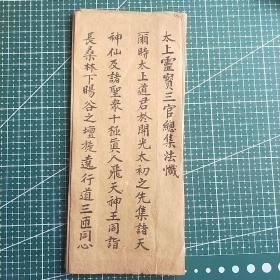 太上靈寳三官總集法懺
爾時太上道君於開光太初之先集諸天
神仙及諸聖衆十極真人飛天神王同詣
長桑林下暘谷之壇旋遶行道三匝同心